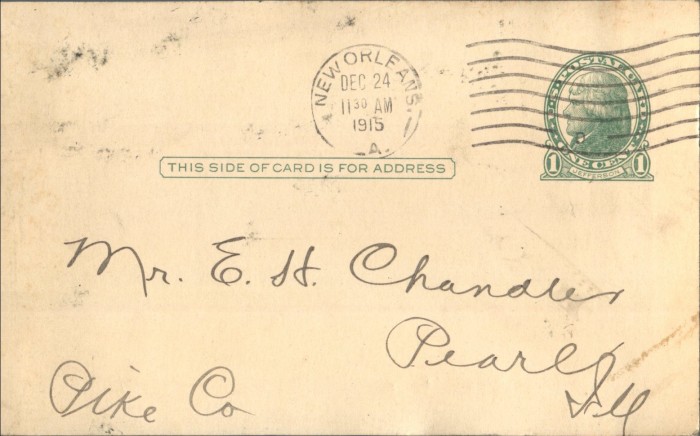 NEW ORLEANS,
DEC 24
11 30 AM
1915
A.
U.S. POSTAL CARD
ONE CENT
1 1
JEFFERSON
THIS SIDE OF CARD IS FOR ADDRESS
Mr. E. H. Chandler
Pearl
Pike Co Ill